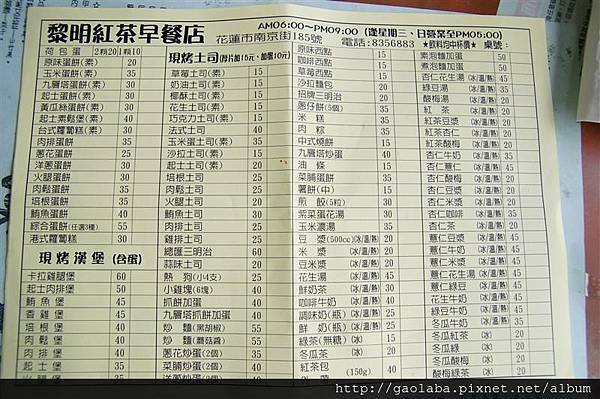 黎明紅茶早餐店
AM06:00～PM09:00 (逢星期三、日營業至PM05:00)
花蓮市南京街185號 電話:8356883 ★飲料均中杯價★ 桌號:
荷包蛋 2顆20 1顆10
原味蛋餅(素) 20
玉米蛋餅(素) 35
九層塔蛋餅(素) 30
起士蛋餅(素) 30
黃瓜絲蛋餅(素) 30
起士素鬆餅(素) 40
台式蘿蔔糕(素) 30
肉排蛋餅 35
蔥花蛋餅 25
洋蔥蛋餅 30
火腿蛋餅 30
培根蛋餅 35
肉鬆蛋餅 35
鮪魚蛋餅 40
綜合蛋餅(任選3種) 55
港式蘿蔔糕 30
現烤漢堡 (含蛋)
卡拉雞腿堡 60
起士肉排堡 50
鮪魚堡 45
香雞堡 45
培根堡 45
肉鬆堡 40
肉排堡 40
起士堡 35
現烤土司(每片加15元、加蛋10元)
草莓土司(素) 15
奶油土司(素) 15
椰酥土司(素) 15
花生土司(素) 15
巧克力土司(素) 15
法式土司 40
玉米蛋土司(素) 35
沙拉土司(素) 15
起士土司(素) 20
培根土司 25
肉鬆土司 25
火腿土司 20
鮪魚土司 30
肉排土司 25
雞排土司 30
總匯三明治 60
蒜味土司 20
熱狗(小4支) 25
小雞塊(6塊) 40
抓餅加蛋 40
九層塔抓餅加蛋 45
炒麵(黑胡椒) 50
炒麵(蘑菇醬) 55
蔥花炒蛋(2個) 35
菜脯炒蛋(2個) 40
洋蔥炒蛋(2個)
原味西點 15
咖啡西點 15
草莓西點 15
沙拉麵包 20
招牌三明治 20
蔥仔餅(5個) 35
米糕 35
肉粽 35
中式燒餅 15
九層塔炒蛋 40
油條 15
菜脯蛋餅 35
薯餅(中) 15
煎餃(5粒) 30
紫菜蛋花湯 30
玉米濃湯 35
豆漿(500cc)(冰/溫/熱) 20
米漿 (冰/溫/熱) 20
豆米漿 (冰/溫/熱) 20
花生湯 (冰/溫/熱) 35
鮮奶茶 (冰/溫/熱) 30
咖啡牛奶 (冰/溫/熱) 40
調味奶(瓶) (冰/溫/熱) 25
鮮奶(瓶) (冰/溫/熱) 25
綠茶(無糖) (冰) 15
冬瓜茶 (冰) 20
紅茶包 (150g) 40
素泡麵加蛋 50
煮泡麵加蛋 50
杏仁花生湯 (冰/溫/熱) 45
綠豆湯 (冰/溫/熱) 35
酸梅湯 (冰) 20
紅茶 (冰/溫/熱) 20
紅茶豆漿 (冰/溫/熱) 20
紅茶杏仁 (冰/溫/熱) 20
紅茶酸梅 (冰) 20
杏仁牛奶 (冰/溫/熱) 45
杏仁薏仁 (冰/溫/熱) 45
杏仁豆漿 (冰/溫/熱) 20
杏仁酸梅 (冰/溫/熱) 20
杏仁咖啡 (冰/溫/熱) 35
杏仁米漿 (冰/溫/熱) 20
薏仁豆漿 (冰/溫/熱) 45
薏仁牛奶 (冰/溫/熱) 45
薏仁米漿 (冰/溫/熱) 45
薏仁花生湯 (冰/溫/熱) 45
薏仁綠豆 (冰/溫/熱) 45
花生牛奶 (冰/溫/熱) 45
綠豆牛奶 (冰/溫/熱) 45
冬瓜牛奶 (冰/溫/熱) 35
冬瓜紅茶 (冰) 20
冬瓜綠 (冰) 20
冬瓜酸梅 (冰) 20
酸梅綠茶 (冰) 20
http://gaolaba.pixnet.net/album